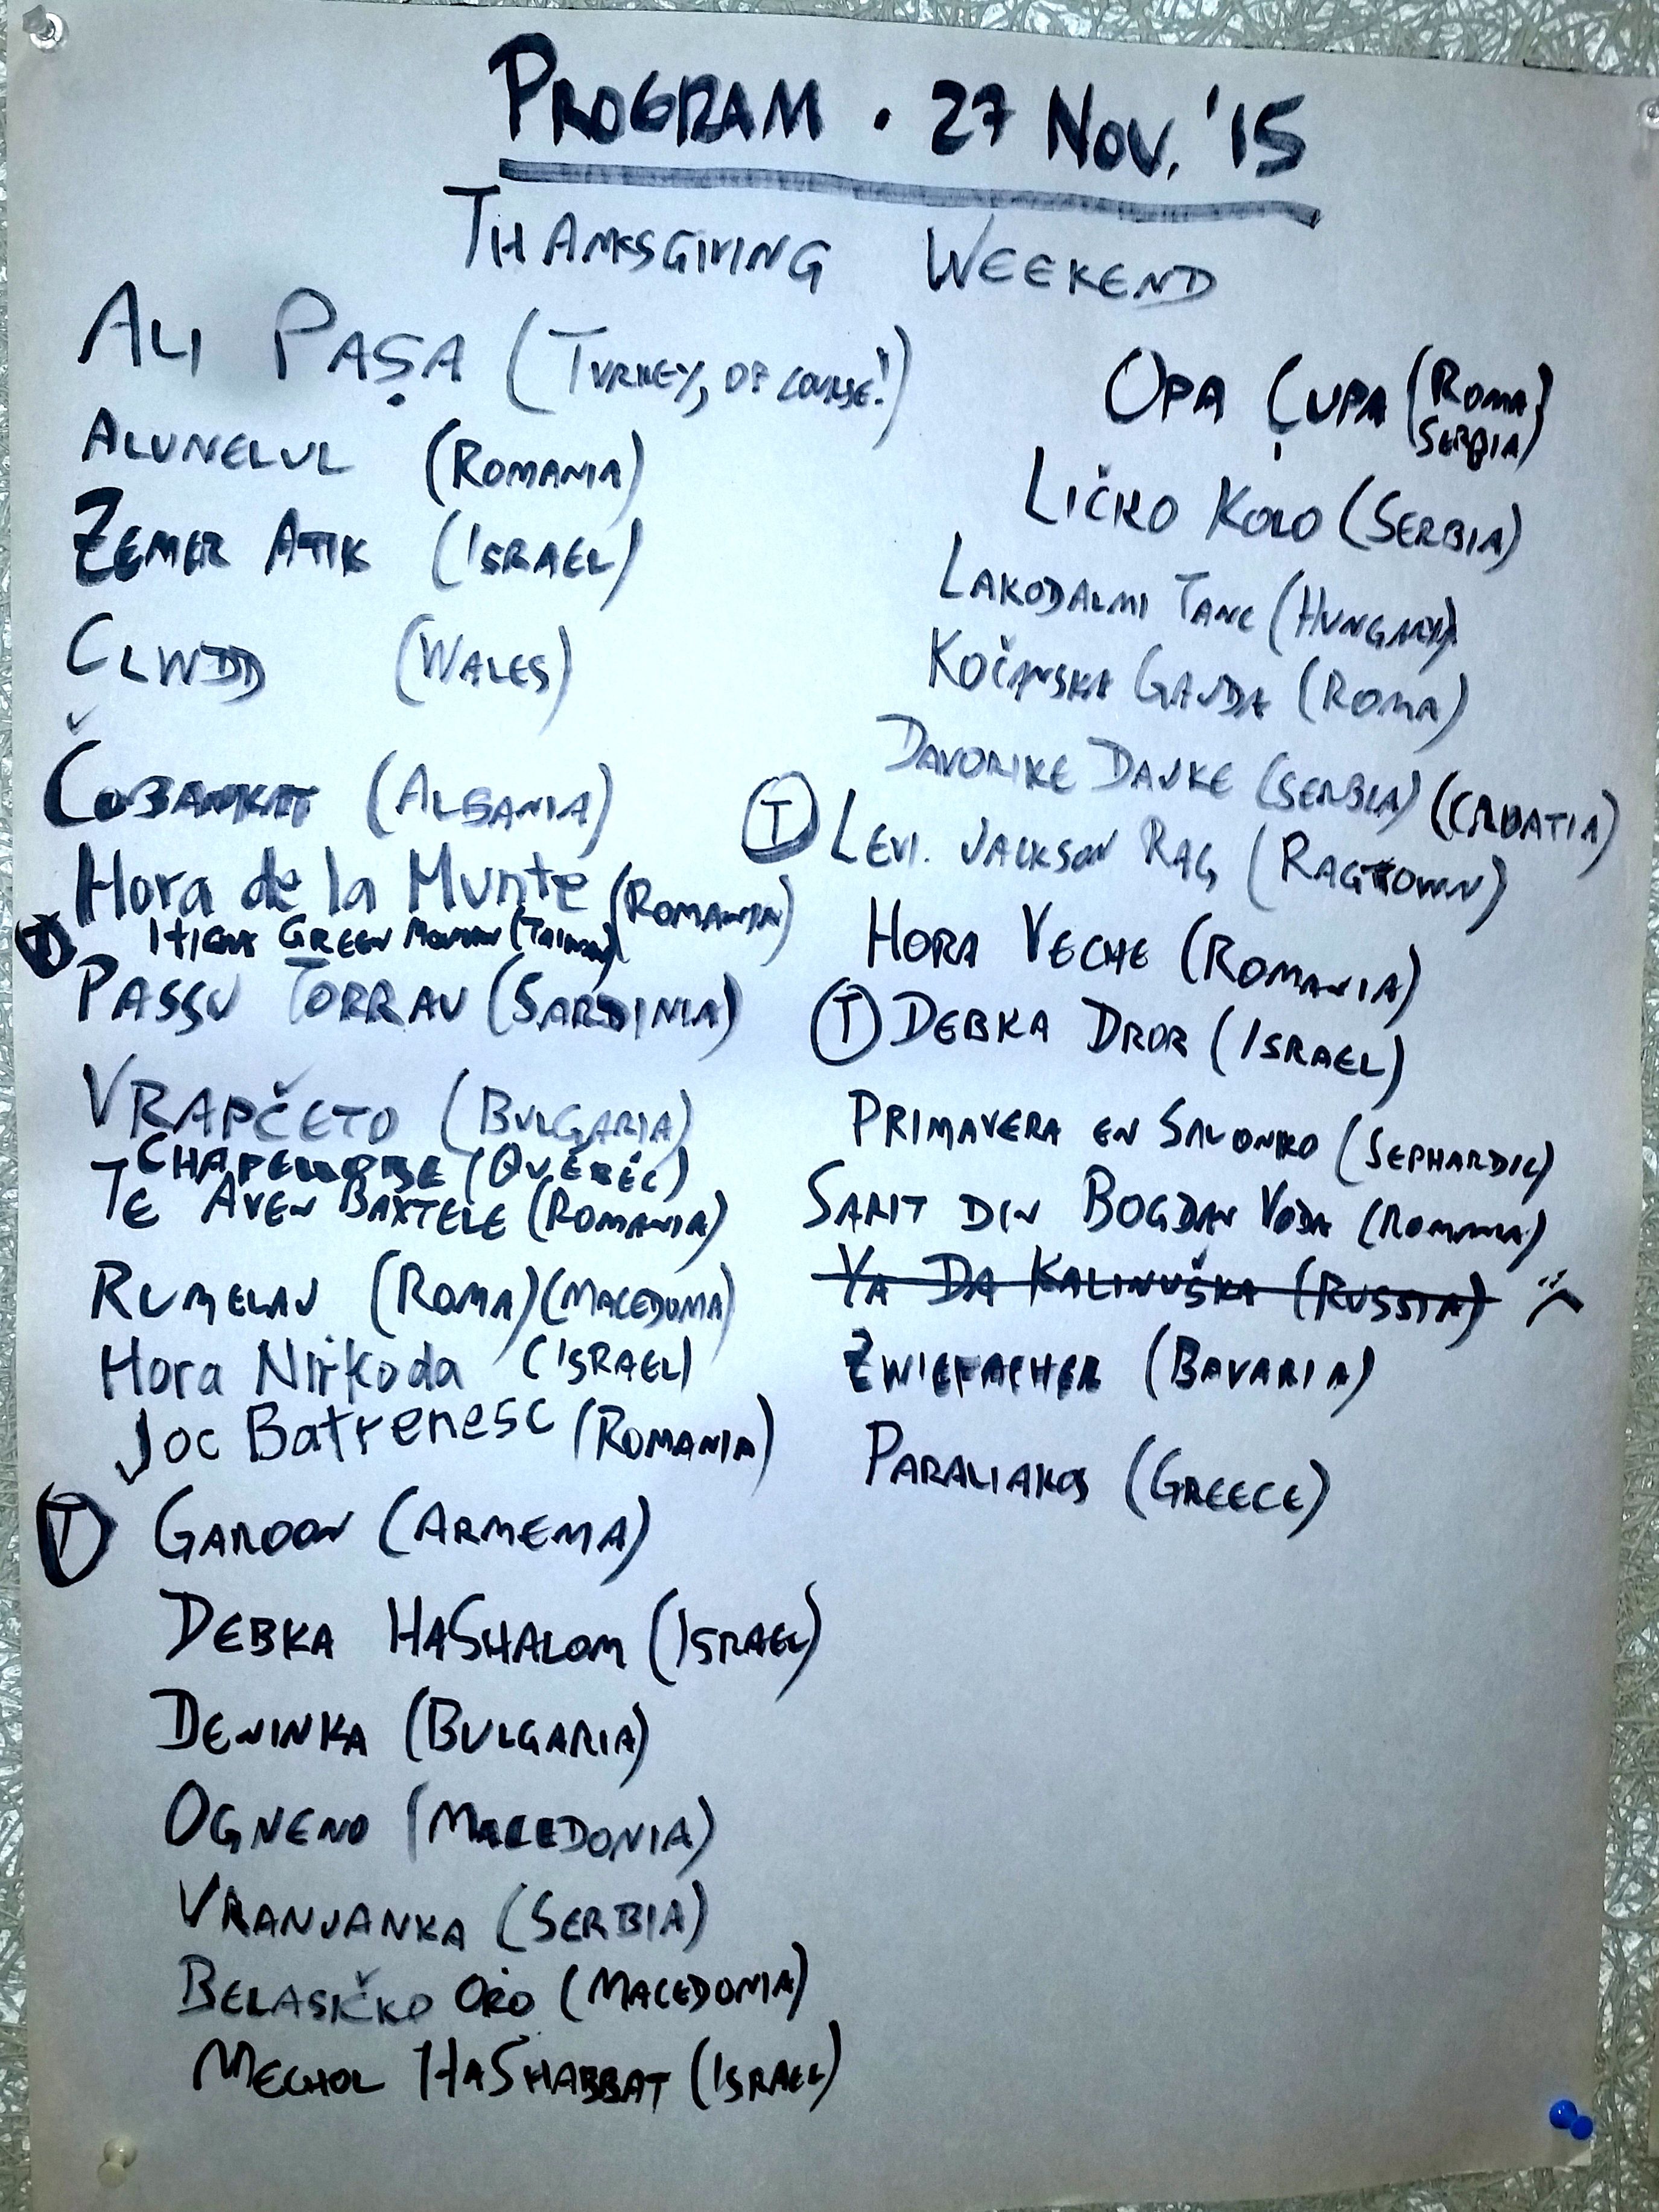 PROGRAM . 27 NOV. '15
THANKSGIVING WEEKEND
ALI PAŞA (TURKEY, OF COURSE!)
ALUNELUL (ROMANIA)
ZEMER ATIK (ISRAEL)
CLWDD (WALES)
ČOBANKAT (ALBANIA)
Hora de la Munte (ROMANIA)
T HIGH GREEN MOUNTAIN (TAIWAN)
PASSU TORRAU (SARDINIA)
VRAPČETO (BULGARIA)
CHAPELLOISE (QUÉBÉC)
TE AVEN BAXTELE (ROMANIA)
RUMELAJ (ROMA) (MACEDONIA)
Hora Nirkoda (ISRAEL)
Joc Batrenesc (ROMANIA)
T GAROON (ARMENIA)
DEBKA HASHALOM (ISRAEL)
DENINKA (BULGARIA)
OGNENO (MACEDONIA)
VRANJANKA (SERBIA)
BELASIČKO ORO (MACEDONIA)
MECHOL HASHABBAT (ISRAEL)
OPA ÇUPA (ROMA)
SERBIA)
LIČKO KOLO (SERBIA)
LAKODALMI TANC (HUNGARY)
KOČANSKA GAJDA (ROMA)
DAVORIKE DAJKE (SERBIA) (CROATIA)
T LEVI JACKSON RAG (RAGTOWN)
HORA VECHE (ROMANIA)
T DEBKA DROR (ISRAEL)
PRIMAVERA EN SALONIKO (SEPHARDIC)
SARIT DIN BOGDAN VODA (ROMANIA)
YA DA KALINUŠKA (RUSSIA)
ZWIEFACHER (BAVARIA)
PARALIAKOS (GREECE)